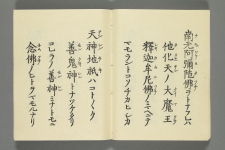 南无阿彌陀佛ヲトナフレハ
他化天ノ大魔王
釋迦牟尼佛ノミマヘニテ
マモラントコソチカヒシカ
天神地祇ハコトヘク
善鬼神トナツケタリ
コレラノ善神ミナトモニ
念佛ノヒトヲマモルナリ